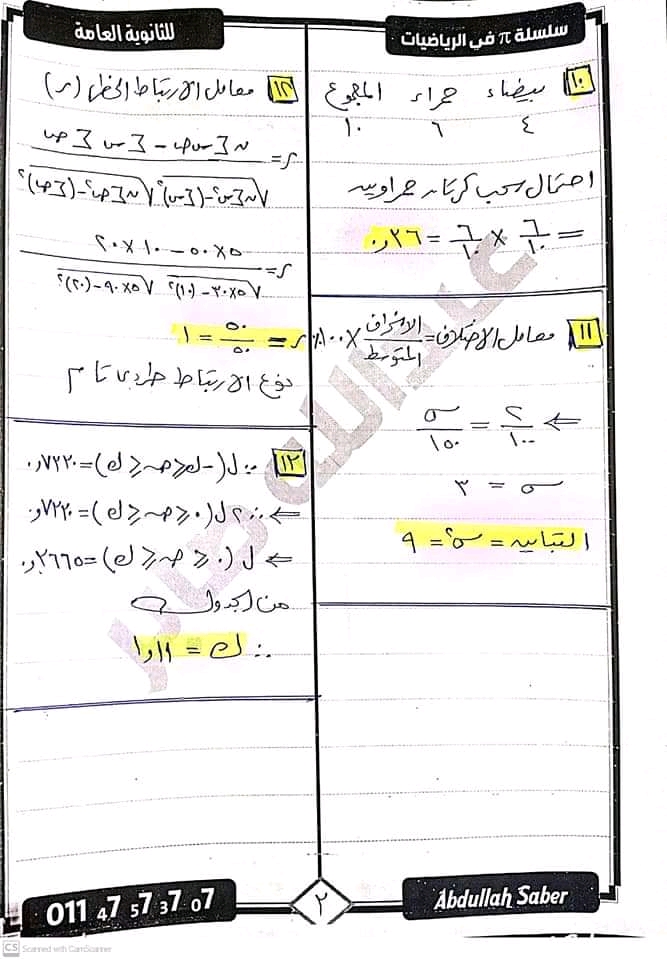 سلسلة π في الرياضيات
للثانوية العامة
١٠ بيضاء حمراء المجموع
٤ ٦ ١٠
احتمال سحب كرتان حمراوين
= ٦/١٠ × ٦/١٠ = ٣٦و.
١١ معامل الاختلاف = الانحراف/المتوسط × ١٠٠٪
⇐ ٢/١٠٠ = σ/١٥٠
σ = ٣
التباين = σ² = ٩
١٢ معامل الارتباط الخطي (ر)
ر = (ن∑س ص − ∑س ∑ص) / (√(ن∑س² − (∑س)²) √(ن∑ص² − (∑ص)²))
ر = (٥×٥٠ − ١٠×٢٠) / (√(٥×٣٠ − (١٠)²) √(٥×٩٠ − (٢٠)²))
ر = ٥٠/٥٠ = ١
نوع الارتباط طردى تام
١٣ ∵ ل(−ك ≤ ص ≤ ك) =
∴ ٢ل(٠ ≤ ص ≤ ك) =
⇐ ل(٠ ≤ ص ≤ ك) =
من الجدول
∴ ك =
011 47 57 37 07
٢
Abdullah Saber
عبدالله صابر
CS Scanned with CamScanner